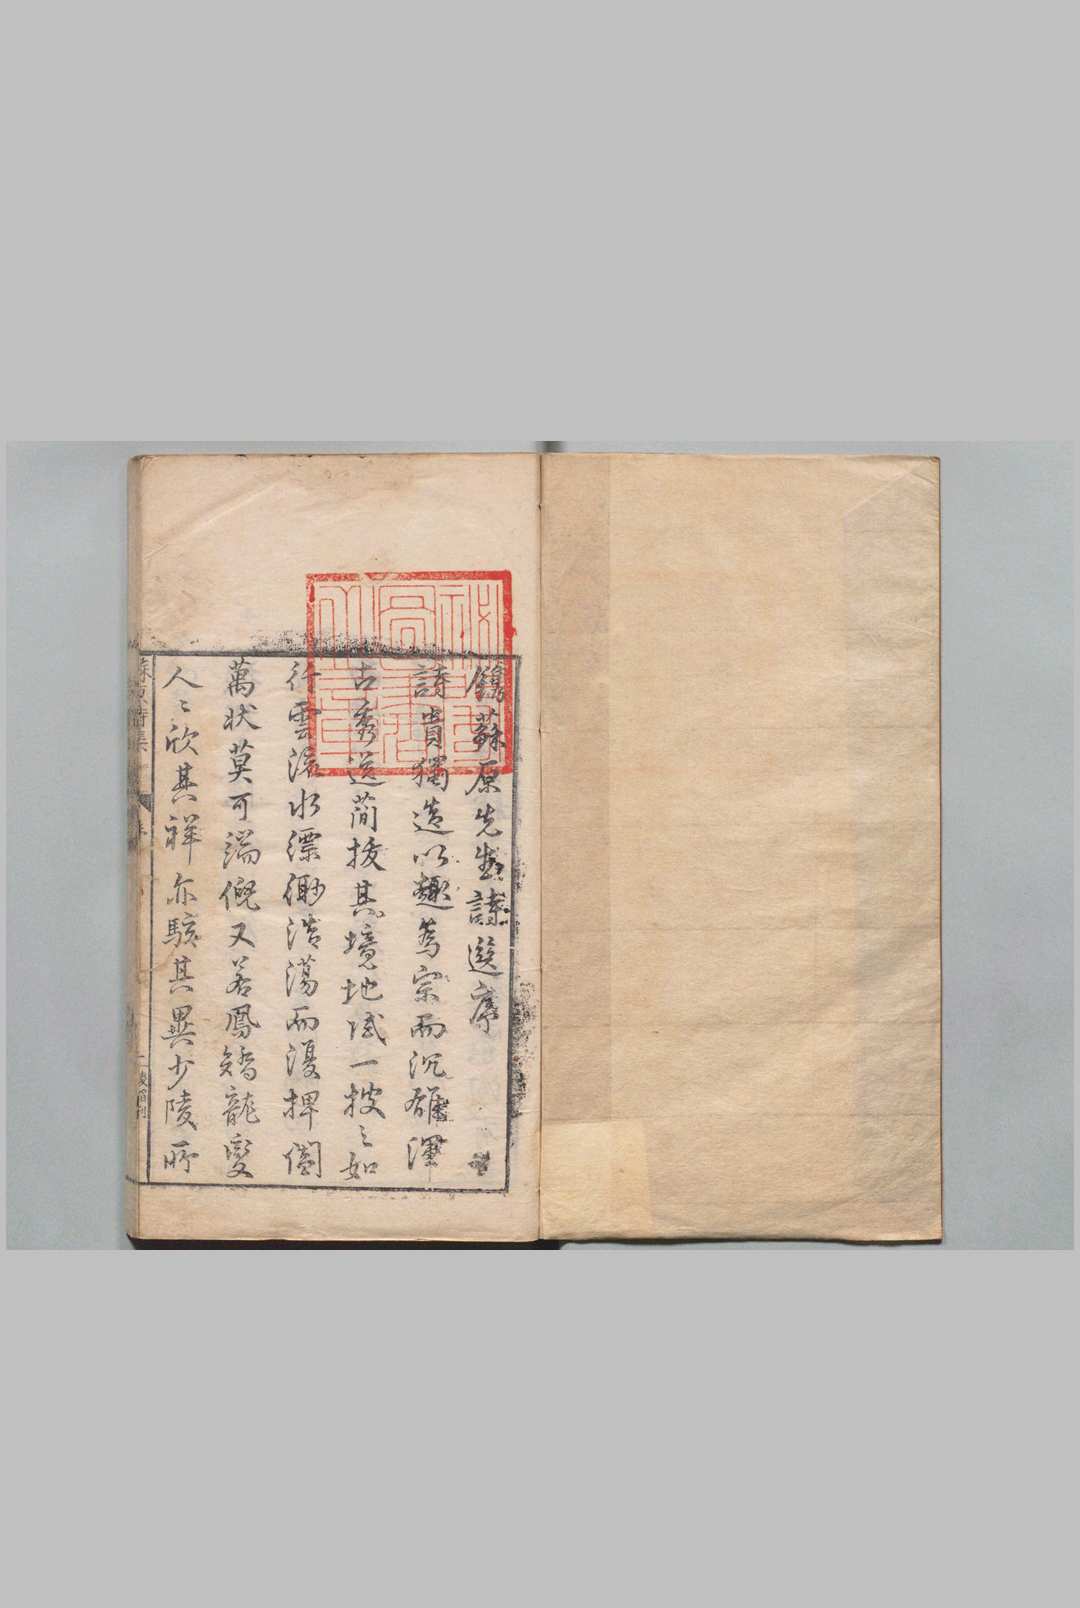 鐫蘇原先生詩選序
詩貴獨造以趣為宗而沉雄渾
古秀逸簡拔其境地咸一披〻如
行雲流水漂緲浩蕩而漫捭闔
萬狀莫可端倪又若鳳矯龍變
人〻欣其祥亦駭其異少陵所